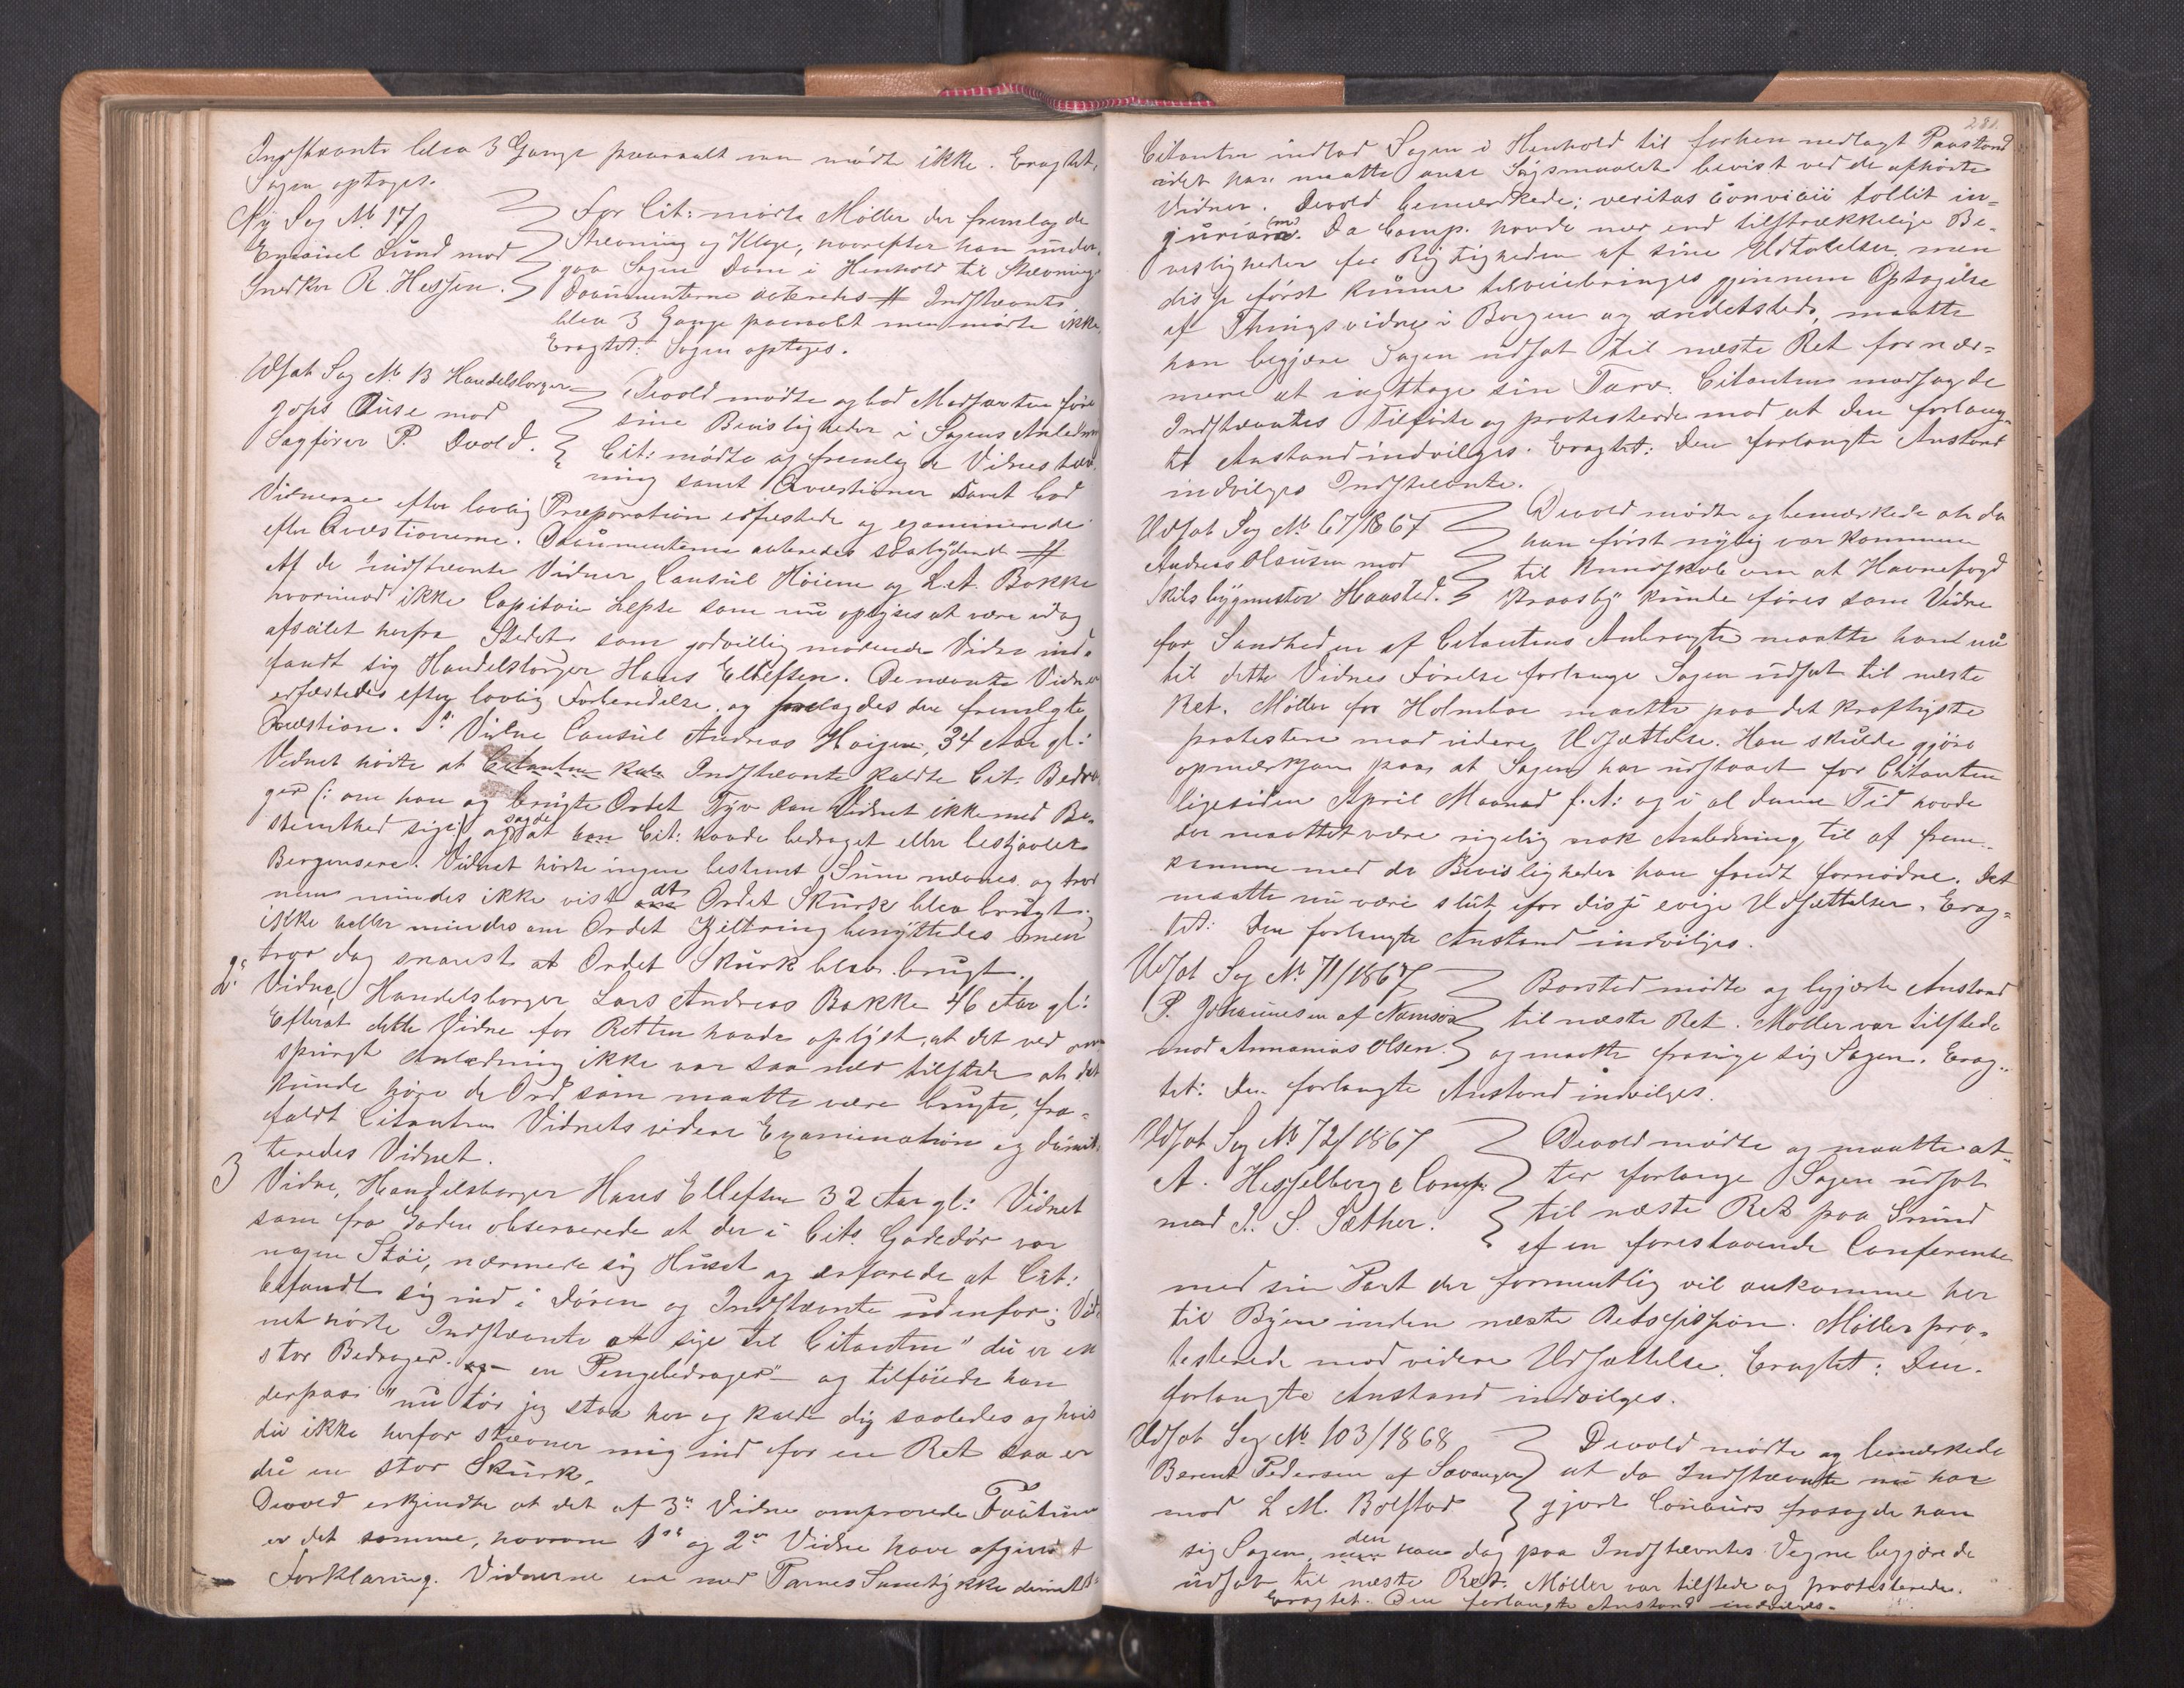 Indstævnte blev 3 Gange paaraabt men mødte ikke. Eragtet,
Sagen optages.
Ny Sag No 17
Enoniel Lund mod
Snedker R. Hessen.
For Cit: mødte Møller der fremlagde
Stævning og Klage, hvorefter han under-
gav Sagen Dom i Henhold til Stævning
Documenterne acteredes # Indstævnte
blev 3 Gange paaraabt men mødte ikke,
Eragtet: Sagen optages.
Udsat Sag No 13 Handelsborger
Johs Buse mod
Sagfører P. Dvold.
Devold mødte og bad Modparten føre
sine Bevisligheder i Sagens Anledning
Cit: mødte og fremlagde Vidnestæv
ning samt Qvæstioner samt bad
Vidnerne efter lovlig Præparation edfæstede og examinerede
efter Qvæstionerne. Documenterne acteredes saalydende #
Af de indstævnte Vidner Consul Høien og L. A. Bakke
hvorimod ikke Capitain Lepsø som nu oplyses at være idag
afseilet herfra Stedet, som godvillig mødende Vidne ind-
fandt sig Handelsborger Hans Ellefsen. De nævnte Vidner
edfæstedes efter lovlig Forberedelse. og forelagdes den fremlagte
Qvæstion. 1ste Vidne Consul Andreas Høigen, 34 Aar gl:
Vidnet hørte at Citanten kal Indstævnte kaldte Cit. Bedra-
ger (: om han og brugte Ordet Tyv kan Vidnet ikke med Be-
stemthed sige:) og sagde at han Cit: havde bedraget eller bestjaalet
Bergensere. Vidnet hørte ingen bestemt Sum nævnes og tror
men mindes ikke vist om at Ordet Skurk blev brugt,
ikke heller mindes om Ordet Kjeltring benyttedes men
tror dog snarest at Ordet Skurk blev brugt.
2. Vidne, Handelsborger Lars Andreas Bakke 46 Aar gl:
Efterat dette Vidne for Retten havde oplyst, at det ved om
spurgt Anledning ikke var saa nær tilstede at det
kunde høre de Ord som maatte være brugte, fra-
faldt Citanten Vidnets videre Examination og dimit-
teredes Vidnet.
3 Vidne, Handelsborger Hans Ellefsen 32 Aar gl: Vidnet
som fra Gaden observerede at der i Cits. Gadedør var
nogen Støi, nærmede sig Huset og erfarede at Cit:
befandt sig ind i Døren og Indstævnte udenfor; Vid-
net hørte Indstævnte at sige til Citanten "du er en
stor Bedrager og en Pengebedrager" og tilføiede han
derpaa: "nu tør jeg staa her og kalde dig saaledes og hvis
du ikke herfor stævner mig ind for en Ret saa er
du en stor Skurk.
Devold erkjendte at det af 3de Vidne omprovede Factum
er det samme, hvorom 1ste og 2det Vidne have afgivet
Forklaring. Vidnerne ere med Parternes Samtykke dimitt:
281.
Citanten indlod Sagen i Henhold til forhen nedlagt Paastand
idet han maatte anse Søgsmaalet bevist ved de afhørte
Vidner. Devold bemærkede: veritas convicii tollit in-
juriam. (m) Da Comp. havde mer end tilstrækkelige Be-
visligheder for Rigtigheden af sine Udtalelser, men
disse først kunne tilveiebringes gjennem Optagelse
af Thingsvidne i Bergen og andetsteds, maatte
han begjære Sagen udsat til næste Ret for nær-
mere at iagttage sin Tarv. Citanten modsagde
Indstævntes Tilførte og protesterede mod at den forlang-
te Anstand indvilges. Eragtet: Den forlangte Anstand
indvilges Indstævnte.
Udsat Sag No 67/1867
Andreas Olausen mod
Skibsbygmester Haasted.
Devold mødte og bemærkede at da
han først nylig var kommen
til Kundskab om at Havnefogd
Kraasby kunde føres som Vidne
for Sandheden af Citantens Anbragte maatte han nu
til dette Vidnes Førelse forlange Sagen udsat til næste
Ret. Møller for Holmboe maatte paa det kraftigste
protestere mod videre Udsættelse. Han skulde gjøre
opmærksom paa, at Sagen har udstaaet for Citanten
ligesiden April Maaned f. A: og i al denne Tid havde
der maattet være rigelig nok Anledning til at frem-
komme med de Bevisligheder han fandt fornødne. Det
maatte nu være slut for disse evige Udsættelser. Erag-
tet: Den forlangte Anstand indvilges.
Udsat Sag No 71/1867
P. Johannesen af Namsos
mod Annanias Olsen.
Borsted mødte og begjærte Anstand
til næste Ret. Møller var tilstede
og maatte frasige sig Sagen. Erag-
tet: Den forlangte Anstand indvilges.
Udsat Sag No 72/1867
A. Hesselberg & Comp.
mod J. S. Sæther.
Devold mødte og maatte at-
ter forlange Sagen udsat
til næste Ret paa Grund
af en forestaaende Conference
med sin Part der formentlig vil ankomme her
til Byen inden næste Retssession. Møller pro-
testerede mod videre Udsættelse. Eragtet: Den
forlangte Anstand indvilges.
Udsat Sag No 103/1868
Berent Pedersen af Levanger
mod L M. Bolstad
Devold mødte og bemærkede
at da Indstævnte nu har
gjort Concurs frasagde han
sig Sagen, men den han dog paa Indstævntes Vegne begjærede
udsat til næste Ret. Møller var tilstede og protesterede.
Eragtet. Den forlangte Anstand indvilges.